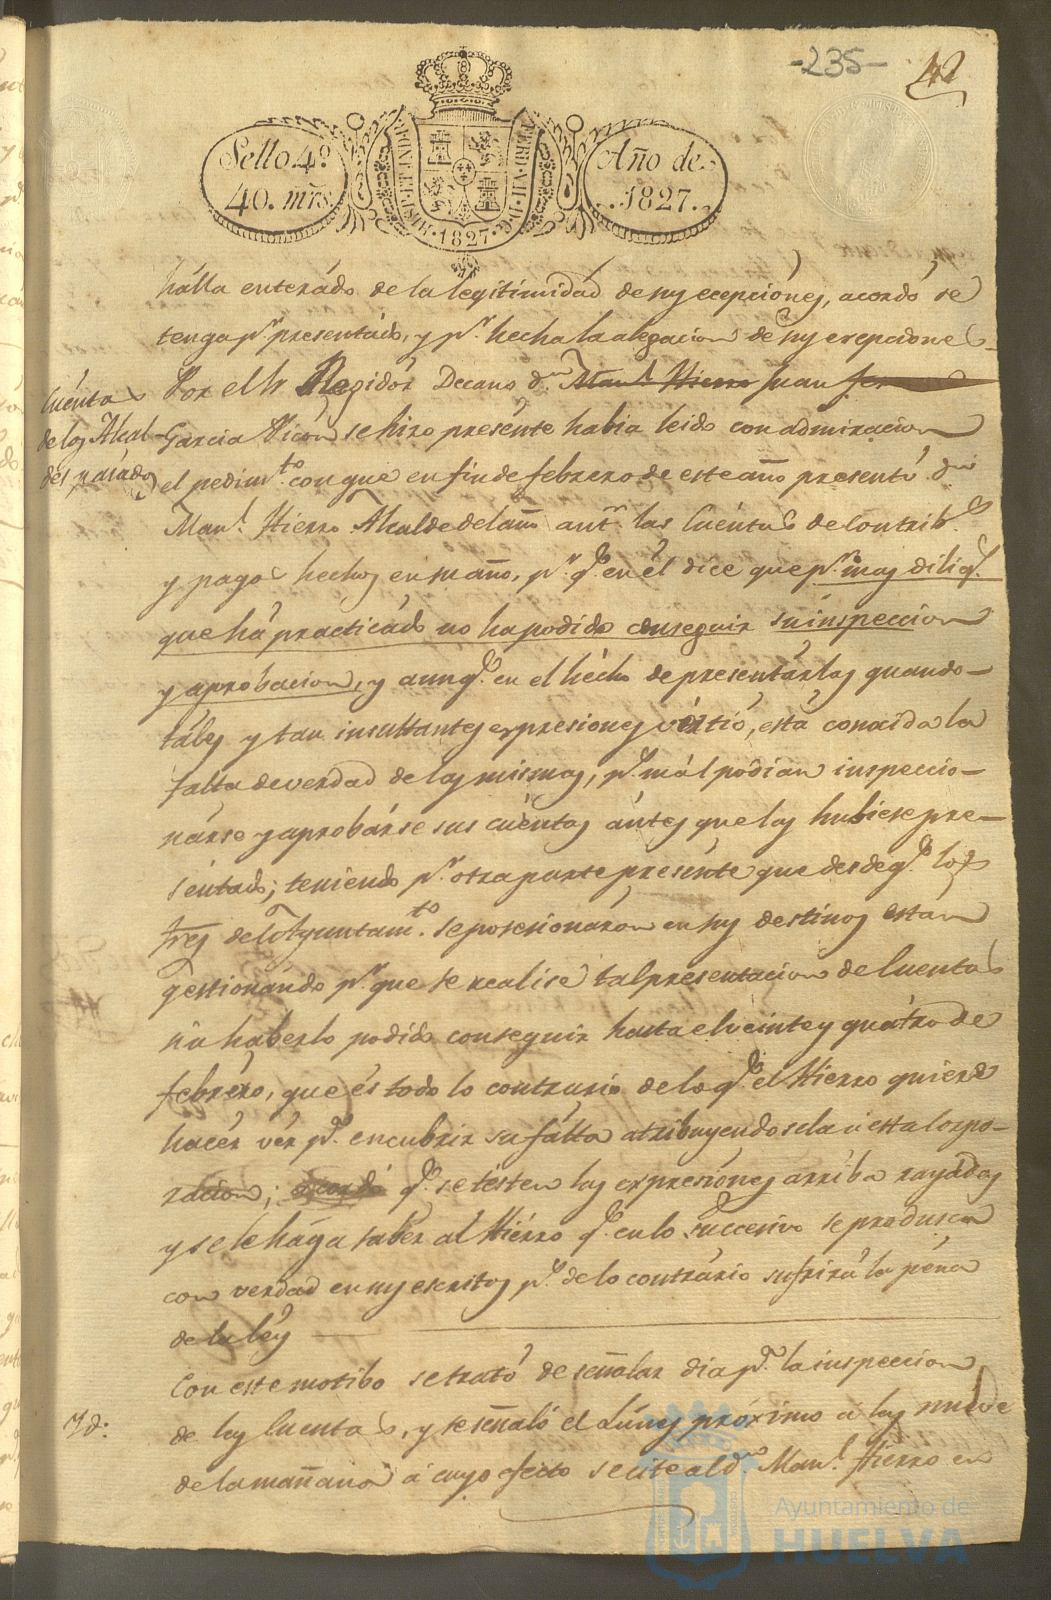 -235-
42
Sello 4º
40. mrs.
HISP. ET IND. R.
FERD. VII. D. G.
·1827·
Año de
1827.
hálla enterádo de la legitimidad de sus ecepciónes, acordó se
tenga pr. presentádo, y pr. hecha la alegacion de sus ecepciones
Cuéntas
de los Alcal-
des pasádos
Por el Sr Regidór Decano dn. Manl. Hierro Juan
Garcia Vicón se hizo presénte habia leido con admiracion
el pedimto. con que en fin de febrero de este año presentó dn
Manl. Hierro Alcalde del año antr. las Cuéntas de Contribs.
y pagos hechos en su año, pr. qe. en él dice que pr. mas diligs.
que há practicádo no ha podido conseguir su inspeccion
y aprobacion, y aunqe. en el hécho de presentárlas quando
táles y tan insultantes expresiones vertió, está conocida la
falta de verdad de las mismas, ps. mál podian inspeccio-
nárse y aprobárse sus cuéntas ántes que las hubiese pre-
sentado; teniendo pr. otra parte presénte que desde qe. los
Sres del Ayuntamto. se posesionáron en sus destinos están
gestionándo pa. que se realise tal presentacion de Cuentas
sin haberlo podido conseguir hasta el veinte y quátro de
febréro, que és todo lo contrario de lo qe. el Hierro quiere
hacér vér pa. encubrir su fálta atribuyendosela á esta Corpo-
racion; acordó qe. se tésten las expresiónes arriba rayádas
y se le hága saber al Hiérro qe. en lo succesivo se produsca
con verdad en sus escritos ps. de lo contrário sufrirá la péna
de la léy
Con este motibo se trató de señalar dia pa. la inspeccion
Yd:
de las Cuentas, y se señaló el Lúnes próximo á las nueve
de la mañana á cuyo efecto se cite al dn. Manl. Hierro en
Ayuntamiento de
HUELVA